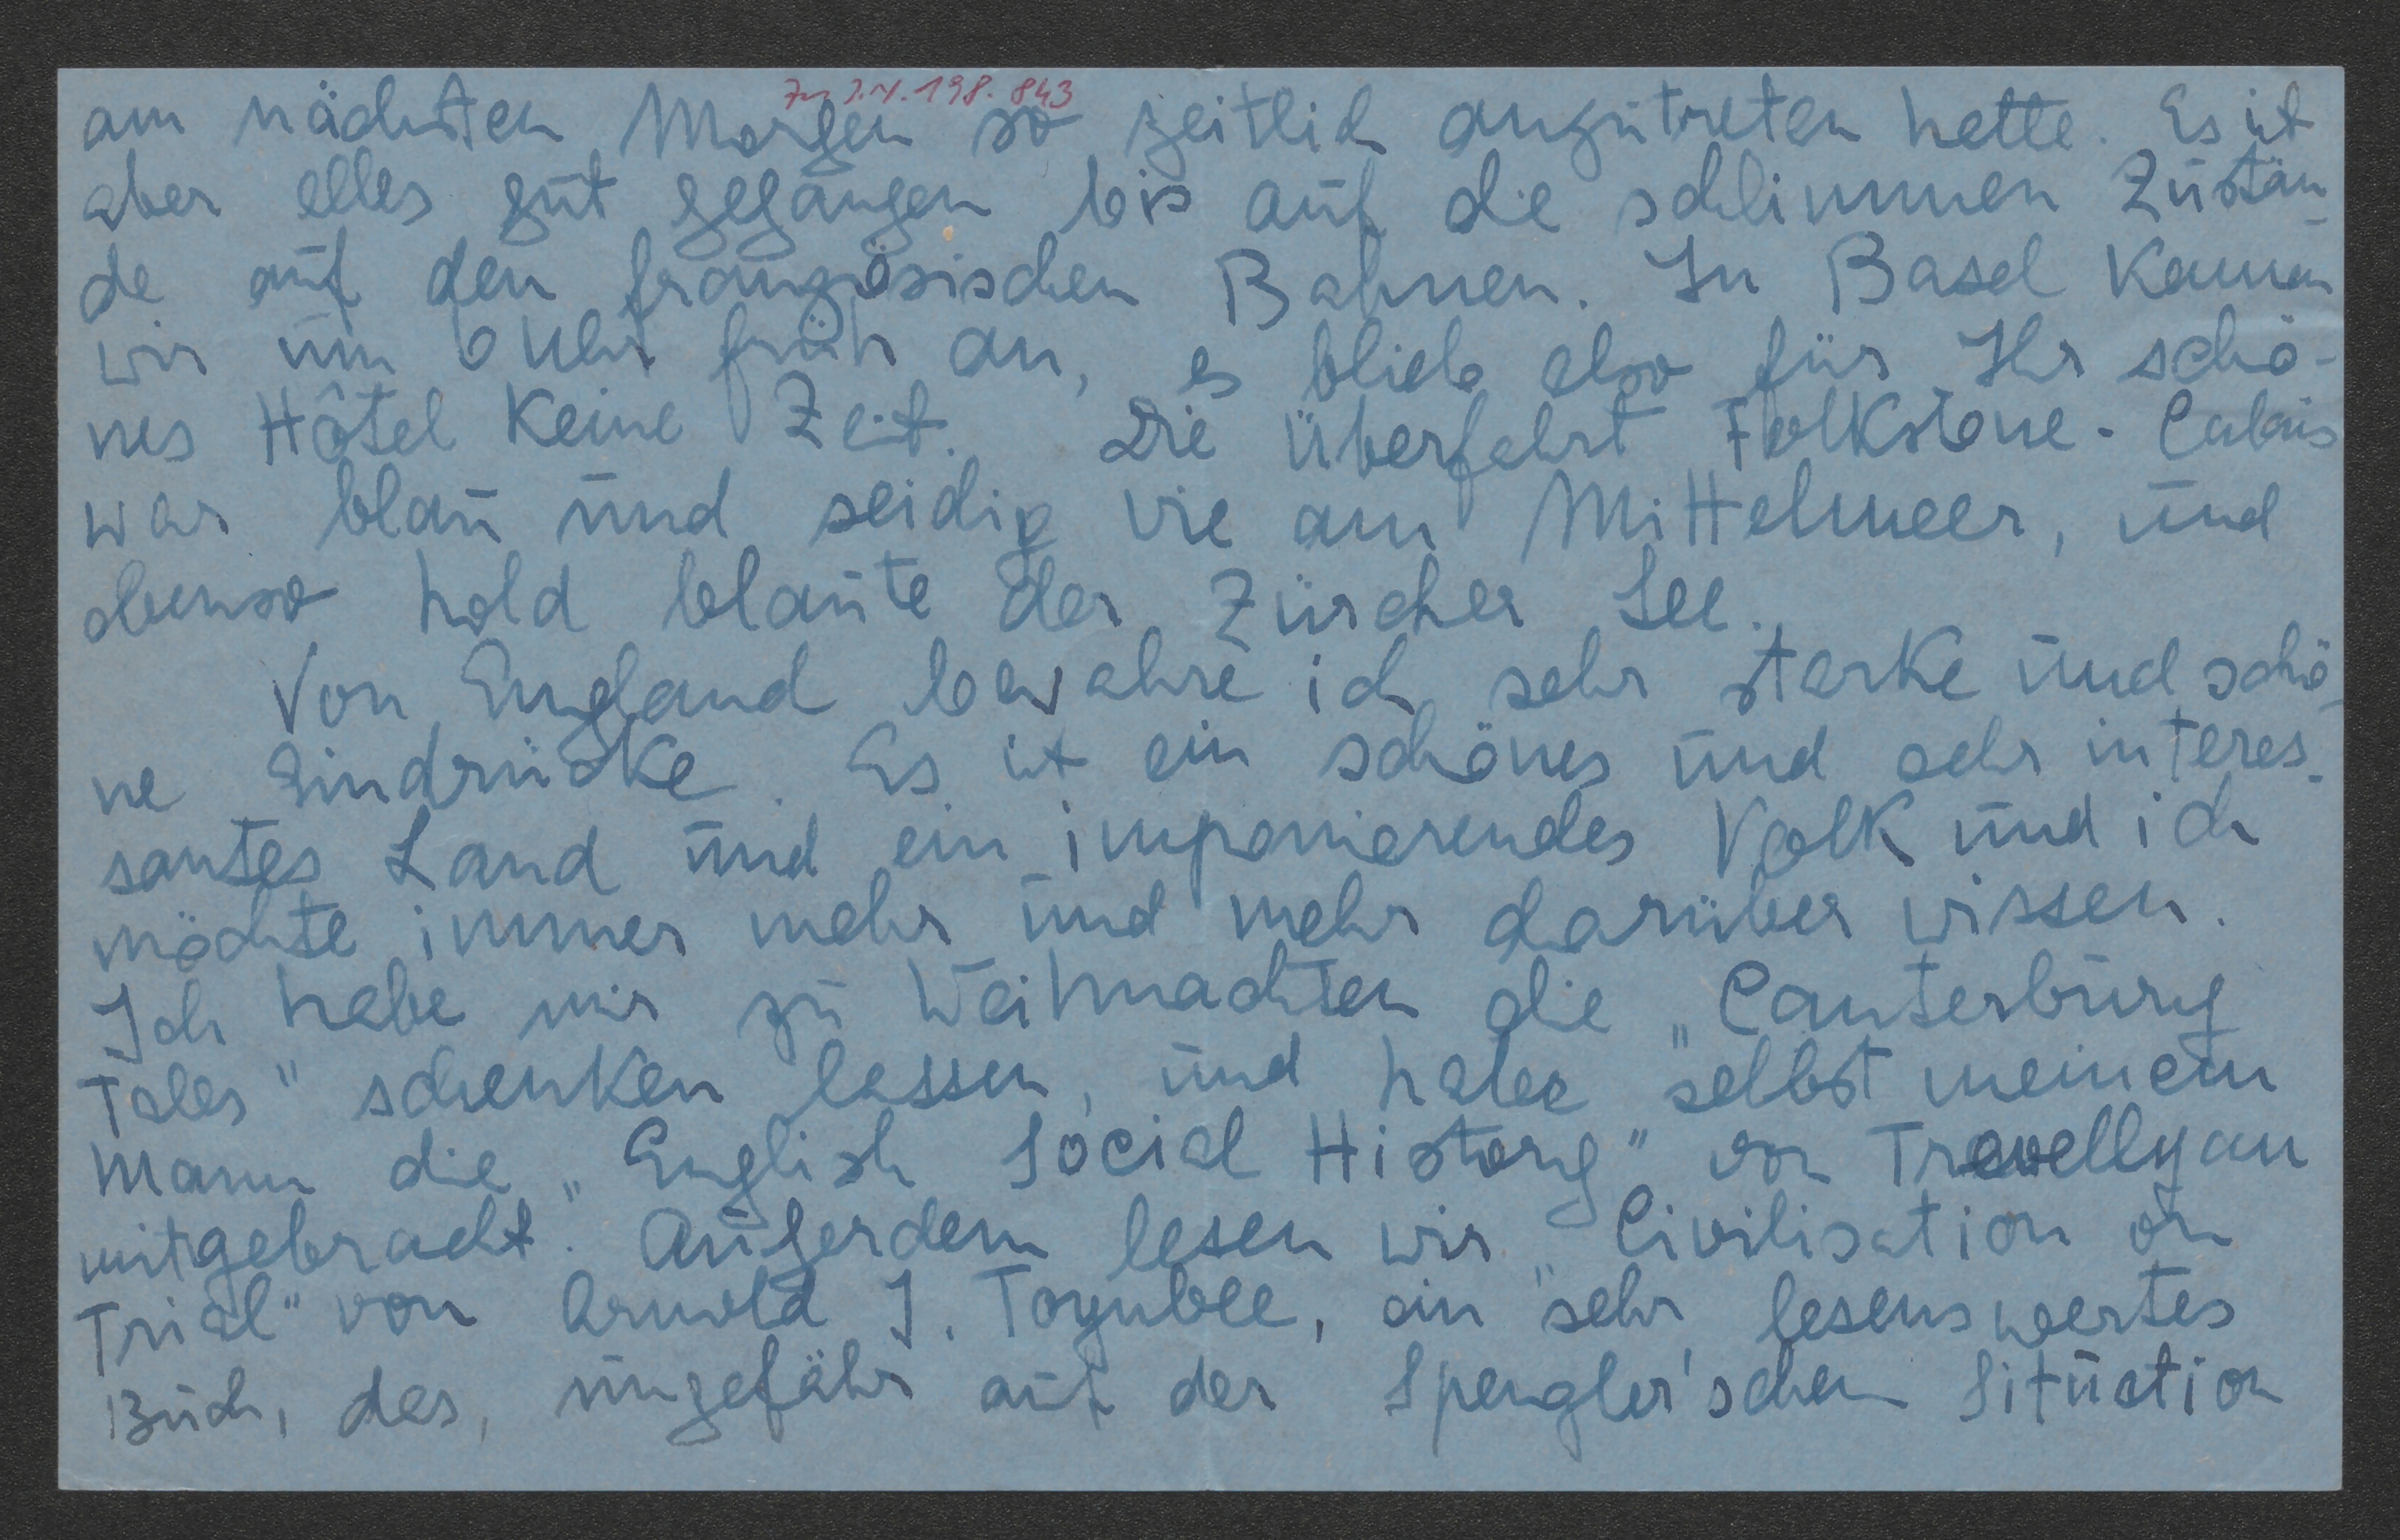 Zu I.N. 198.843
am nächsten Morgen so zeitlich anzutreten hatte. Es ist
aber alles gut gegangen bis auf die schlimmen Zustän-
de auf den französischen Bahnen. In Basel kamen
wir um 6 Uhr früh an, es blieb also für Ihr schö-
nes Hôtel keine Zeit. Die Überfahrt Folkstone - Calais
war blau und seidig wie am Mittelmeer, und
ebenso hold blaute der Zürcher See.
Von England bewahre ich sehr starke und schö-
ne Eindrücke. Es ist ein schönes und sehr interes-
santes Land und ein imponierendes Volk und ich
möchte immer mehr und mehr darüber wissen.
Ich habe mir zu Weihnachten die „Canterbury
Tales" schenken lassen, und habe selbst meinem
Mann die „English Social History" von Trevellyan
mitgebracht. Außerdem lesen wir „Civilisation on
Trial" von Arnold J. Toynbee, ein sehr lesenswertes
Buch, das, ungefähr auf der Spengler'schen Situation